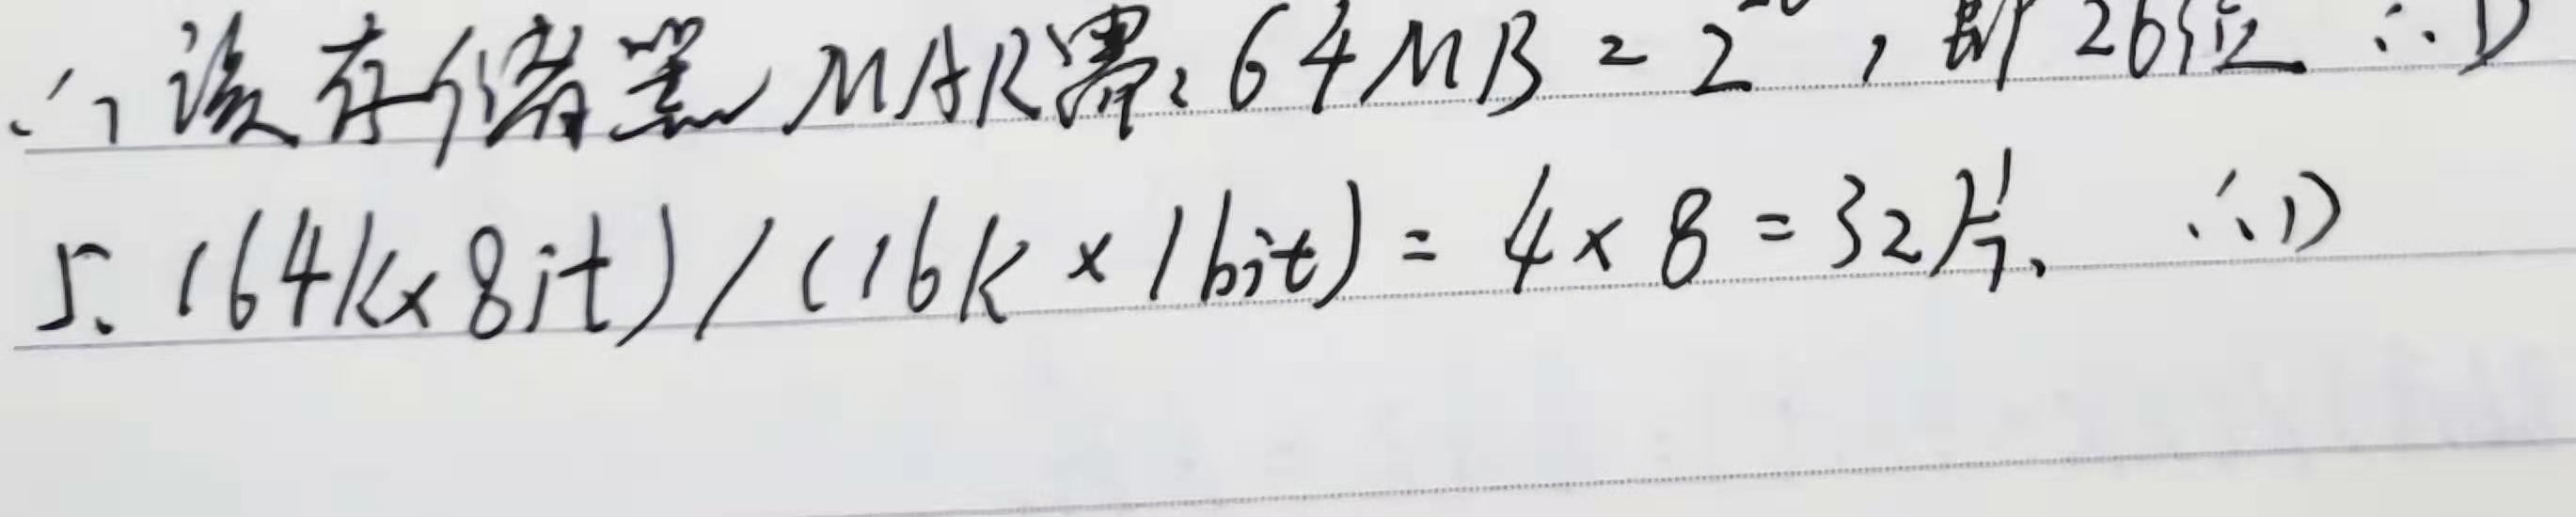 ∴该存储器MAR需: 64MB = 2²⁶, 即26位 ∴D
5. (64k×8it) / (16k × 1bit) = 4 × 8 = 32片. ∴D